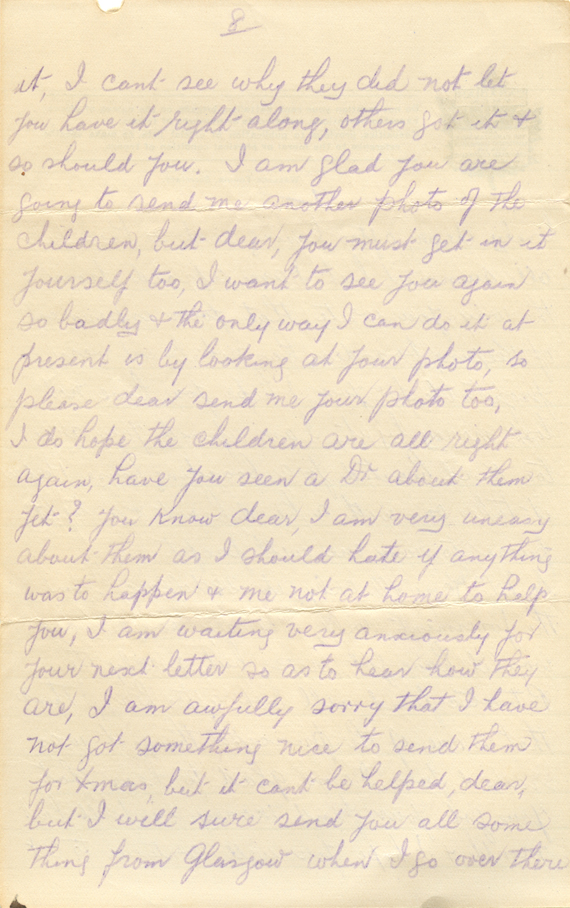 8
it, I cant see why they did not let
you have it right along, others got it &
so should you. I am glad you are
going to send me another photo of the
children, but dear, you must get in it
yourself too, I want to see you again
so badly & the only way I can do it at
present is by looking at your photo, so
please dear send me your photo too,
I do hope the children are all right
again, have you seen a Dr about them
yet? You know dear, I am very uneasy
about them as I should hate if anything
was to happen & me not at home to help
you, I am waiting very anxiously for
your next letter so as to hear how they
are, I am awfully sorry that I have
not got something nice to send them
for Xmas, but it cant be helped, dear,
but I will sure send you all some
thing from Glasgow when I go over there